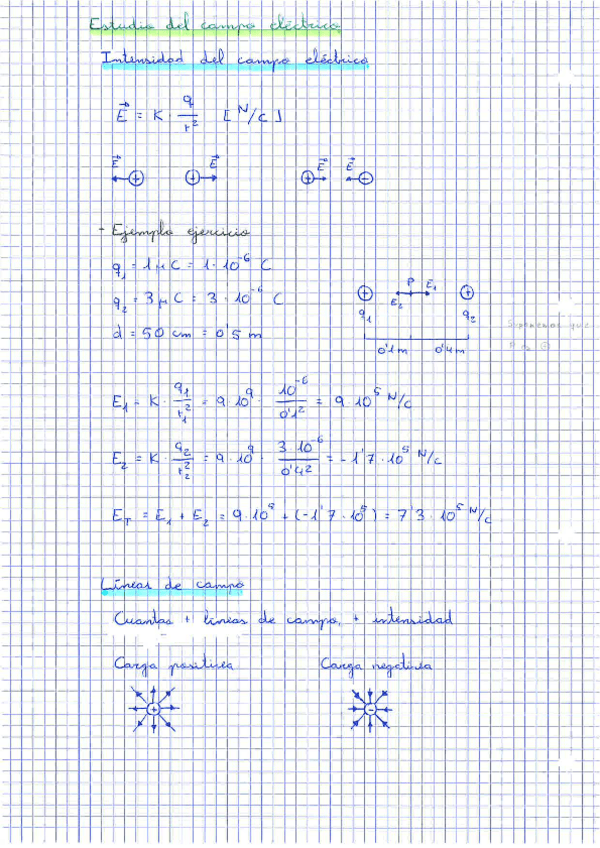 Estudio del campo eléctrico
Intensidad del campo eléctrico
E⃗ = K · q/r² [N/C]
E⃗ ⊕ ⊕ E⃗ ⊕ E⃗ E⃗ ⊖
- Ejemplo ejercicio
q₁ = 1 μC = 1 · 10⁻⁶ C
q₂ = 3 μC = 3 · 10⁻⁶ C
d = 50 cm = 0'5 m
⊕ P E₁ ⊕
q₁ E₂ q₂
0'1 m 0'4 m
Suponemos que
E₁ = K · q₁/r₁² = 9 · 10⁹ · 10⁻⁶/0'1² = 9 · 10⁵ N/C
E₂ = K · q₂/r₂² = 9 · 10⁹ · 3 · 10⁻⁶/0'4² = -1'7 · 10⁵ N/C
E_T = E₁ + E₂ = 9 · 10⁵ + (-1'7 · 10⁵) = 7'3 · 10⁵ N/C
Líneas de campo
Cuantas + líneas de campo, + intensidad
Carga positiva Carga negativa
+ -